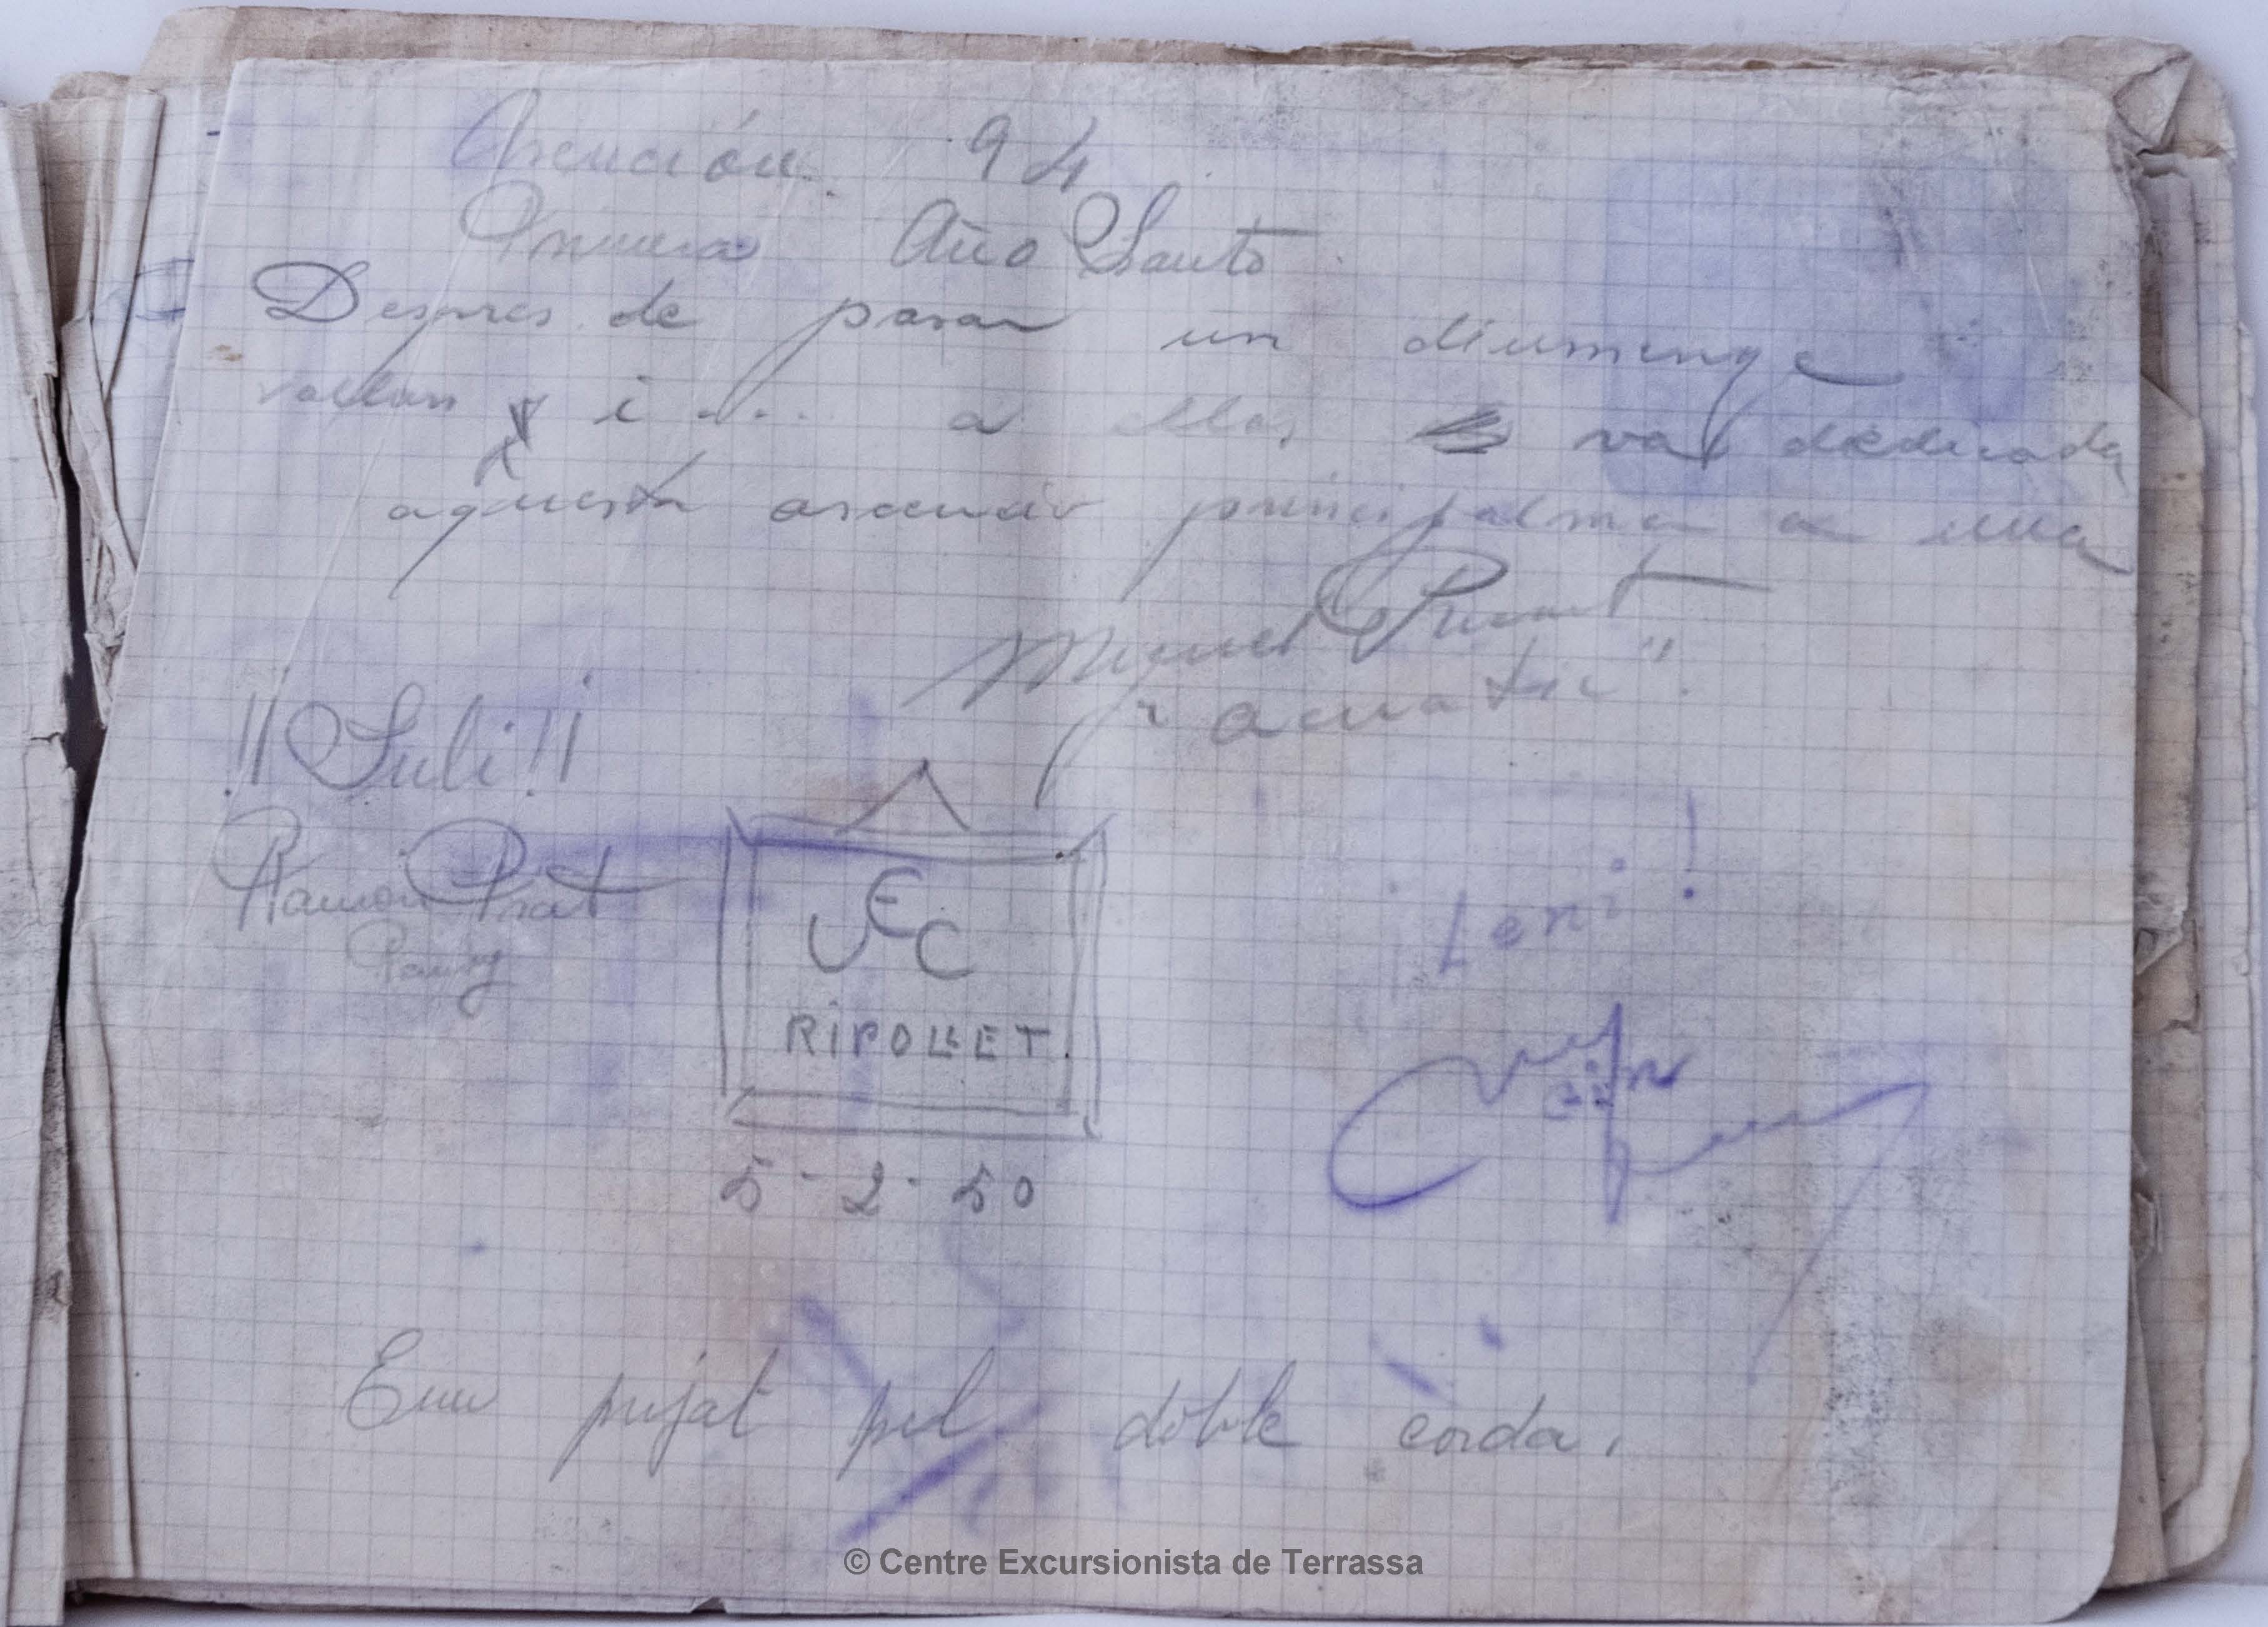 Ascención 94
Primera Año Santo
Despres de pasar un diumenge
i .... a ellas va dedicada
aquesta ascencio principalmen a ella
Miguel
"acuatic".
!!Luli!!
Ramon Prat
UEC
RIPOLLET.
5-2-50
¡Leni!
Em pujat pel doble corda.
© Centre Excursionista de Terrassa